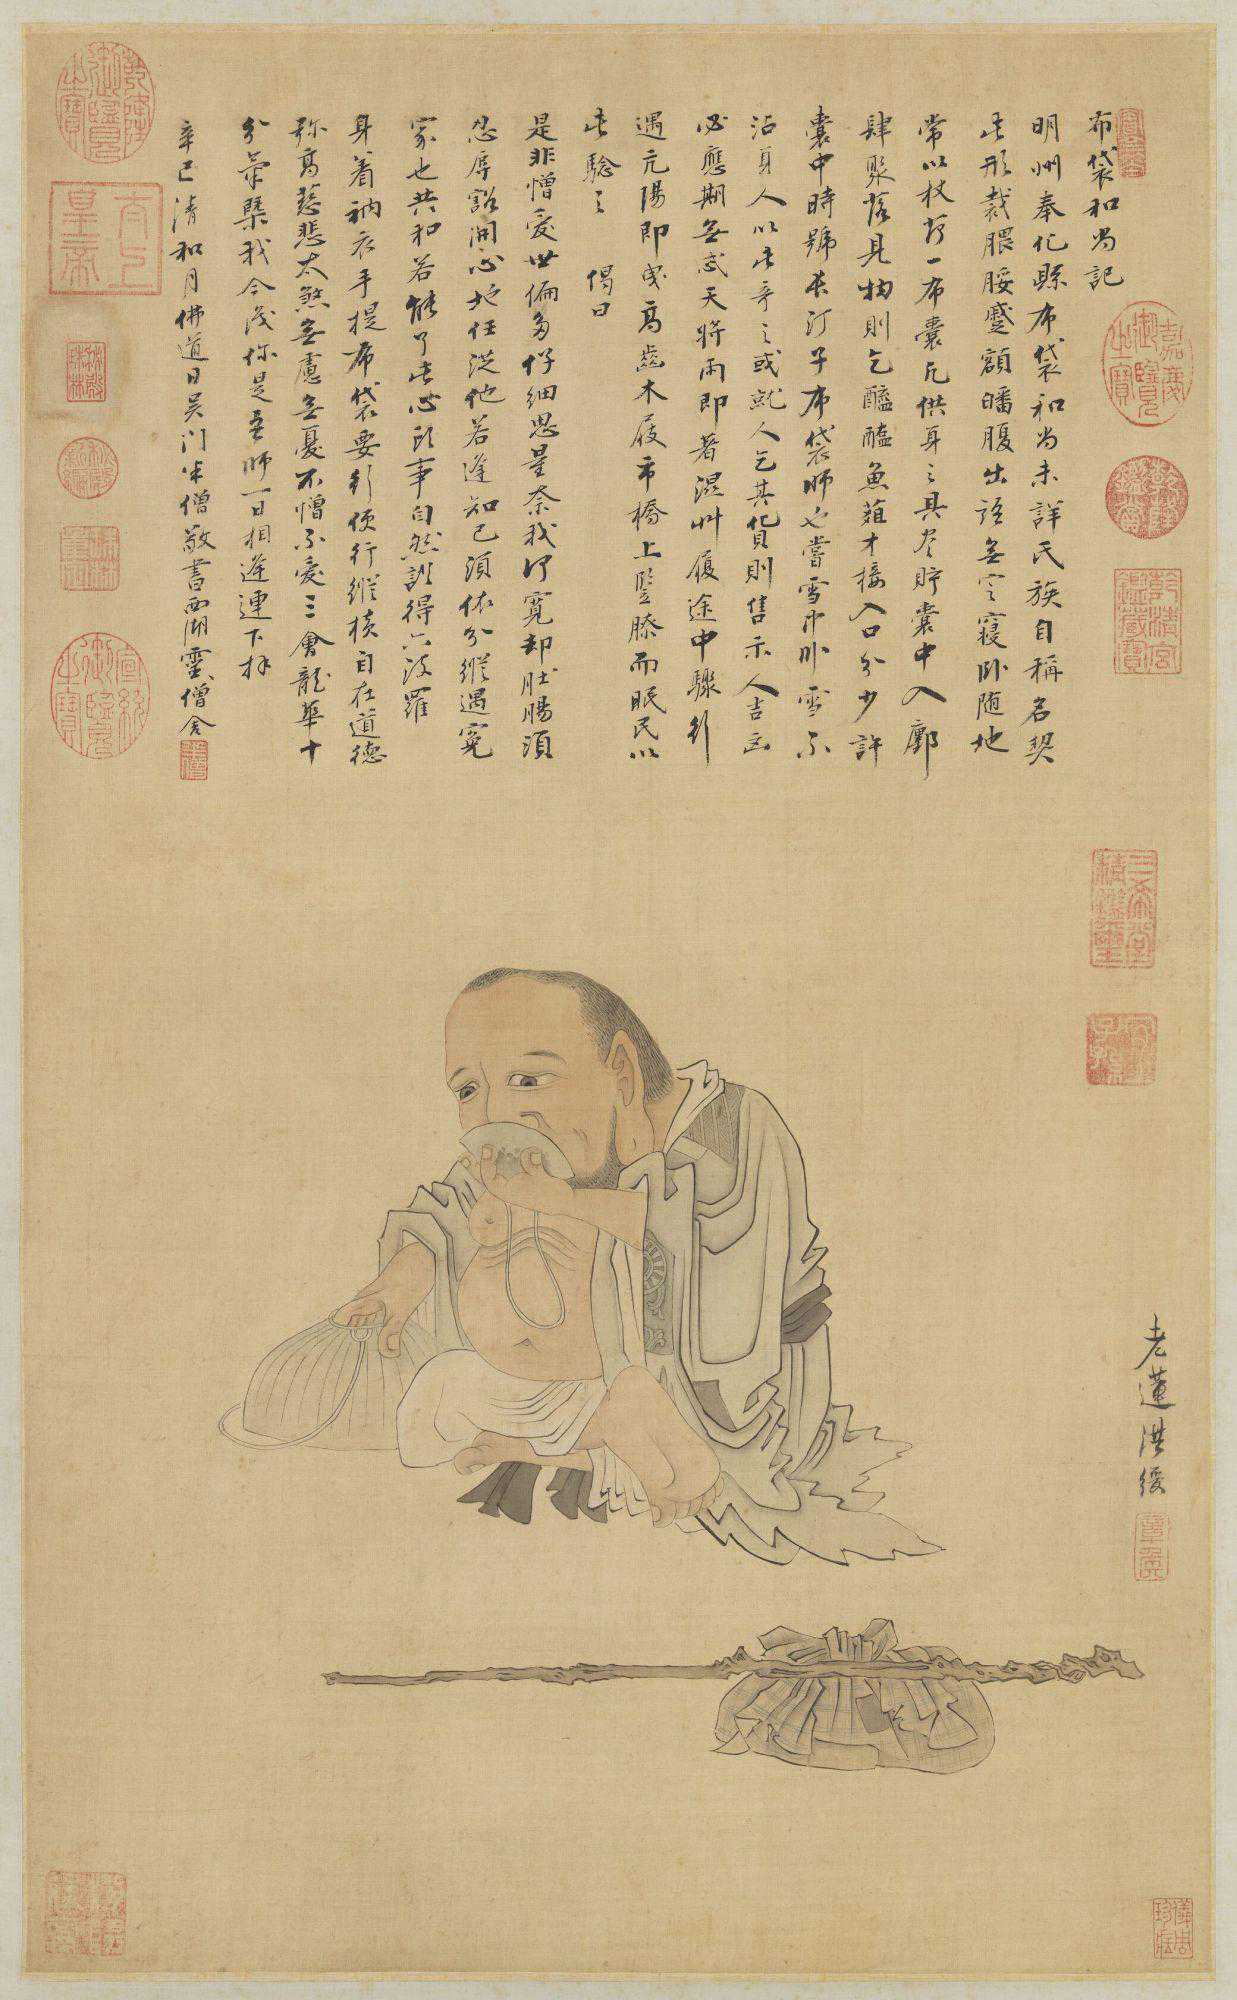 布袋和尚記
明州奉化縣布袋和尚未詳氏族自稱名契
此形裁腲脮蹙額皤腹出語無定寢臥隨地
常以杖荷一布囊凡供身之具盡貯囊中入鄽
肆聚落見物則乞醯醢魚葅才接入口分少許
囊中時號長汀子布袋師也嘗雪中臥雪不
沾身人以此奇之或就人乞其貨則售示人吉凶
必應期無忒天將雨即著濕艸履途中驟行
遇亢陽即曳高齒木屐市橋上豎膝而眠民以
此驗之 偈曰
是非憎愛世偏多仔細思量奈我何寬却肚腸須
忍辱豁開心地任從他若逢知己須依分縱遇冤
家也共和若能了此心頭事自然證得六波羅
身着衲衣手提布袋要行便行縱橫自在道德
弥高慈悲太煞無慮無憂不憎不愛三會龍華十
分氣槩我今識你是吾師一日相逢連下拜
辛巳清和月佛道日吳门半僧敬書西湖靈僧舍
老蓮洪綬
乾隆御覽之寶
太上皇帝
嘉慶御覽之寶
宣統御覽之寶
乾隆鑑賞
乾清宮鑑藏寶
三希堂精鑑璽
宜子孫
章矦